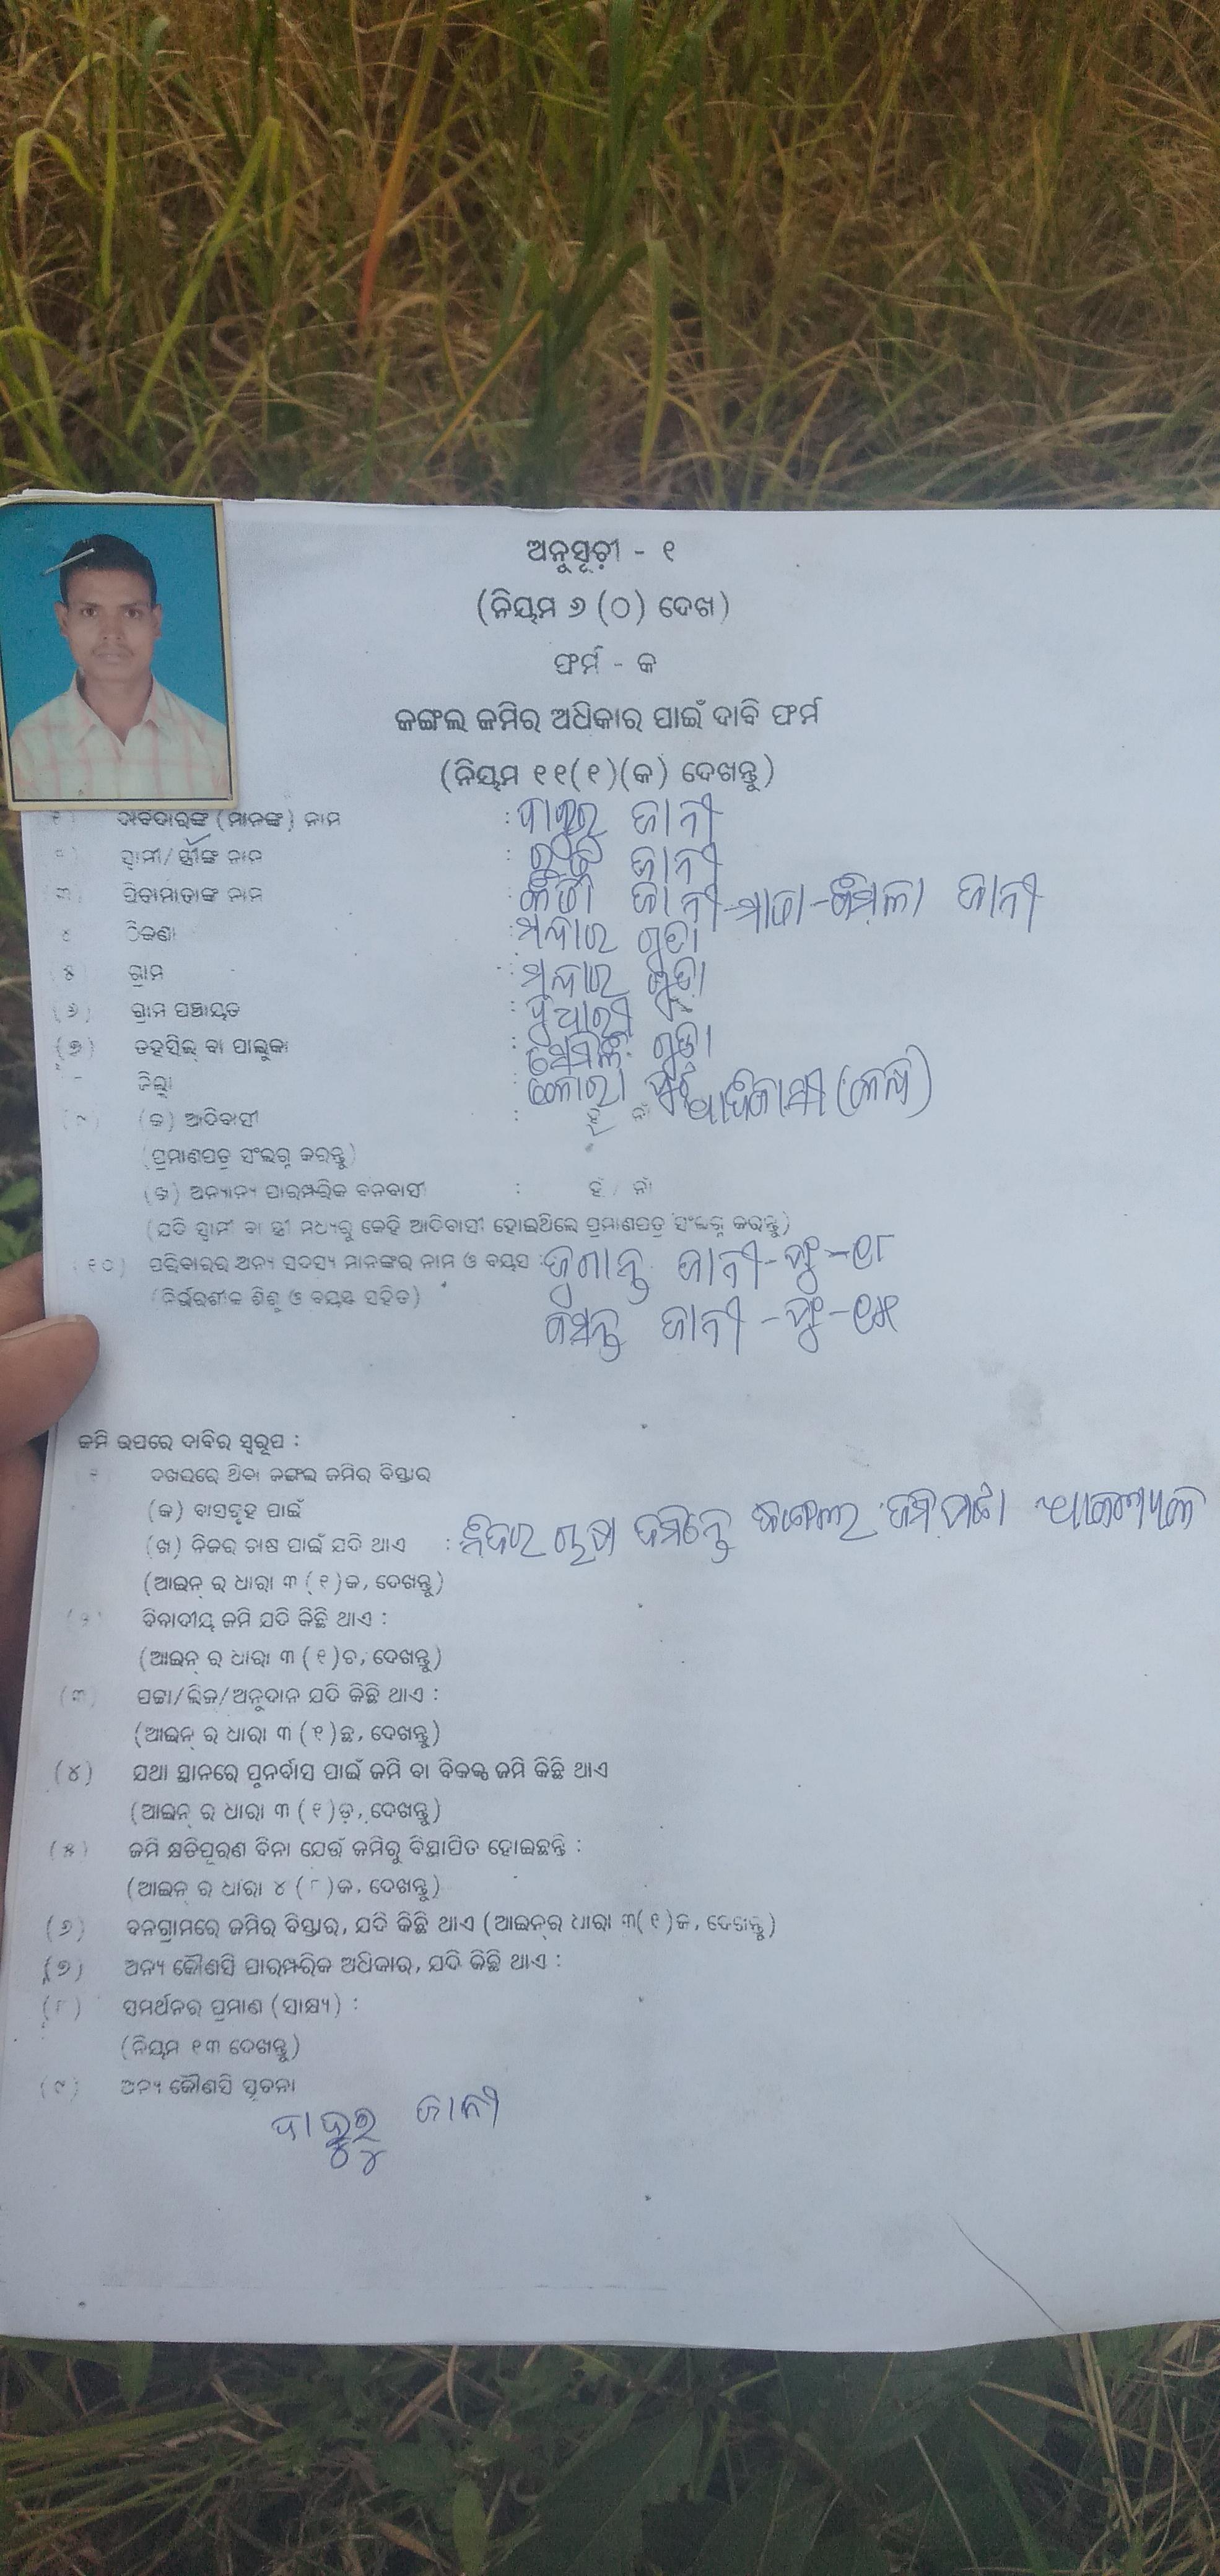 ଅନୁସୂଚୀ - ୧
(ନିୟମ ୬ (୦) ଦେଖ)
ଫର୍ମ - କ
ଜଙ୍ଗଲ ଜମିର ଅଧିକାର ପାଇଁ ଦାବି ଫର୍ମ
(ନିୟମ ୧୧(୧)(କ) ଦେଖନ୍ତୁ)
ଦାବିଦାରଙ୍କ (ମାନଙ୍କ) ନାମ : ଜାନୀ
ସ୍ୱାମୀ/ସ୍ତ୍ରୀଙ୍କ ନାମ : ଜାନୀ
ପିତାମାତାଙ୍କ ନାମ ଜାନୀ-ମାତା- ଜାନୀ
୪ ଠିକଣା : ଗୁଡା
୫ ଗ୍ରାମ : ଗୁଡା
(୬) ଗ୍ରାମ ପଞ୍ଚାୟତ :
(୭) ତହସିଲ୍ ବା ତାଲୁକା : ଗୁଡା
ଜିଲ୍ଲା : କୋରାପୁଟ
(୯) (କ) ଆଦିବାସୀ : ହଁ ନାଁ ଆଦିବାସୀ
(ପ୍ରମାଣପତ୍ର ସଂଲଗ୍ନ କରନ୍ତୁ)
(ଖ) ଅନ୍ୟାନ୍ୟ ପାରମ୍ପରିକ ବନବାସୀ : ହଁ / ନାଁ
(ଯଦି ସ୍ୱାମୀ ବା ସ୍ତ୍ରୀ ମଧ୍ୟରୁ କେହି ଆଦିବାସୀ ହୋଇଥିଲେ ପ୍ରମାଣପତ୍ର ସଂଲଗ୍ନ କରନ୍ତୁ)
(୧୦) ପରିବାରର ଅନ୍ୟ ସଦସ୍ୟ ମାନଙ୍କର ନାମ ଓ ବୟସ : ଜାନୀ-ପୁ-୧୮
(ନିର୍ଭରଶୀଳ ଶିଶୁ ଓ ବୟସ୍କ ସହିତ) ବସନ୍ତ ଜାନୀ-ପୁ-୧୫
ଜମି ଉପରେ ଦାବିର ସ୍ୱରୂପ :
୧ ଦଖଲରେ ଥିବା ଜଙ୍ଗଲ ଜମିର ବିସ୍ତାର
(କ) ବାସଗୃହ ପାଇଁ
(ଖ) ନିଜର ଚାଷ ପାଇଁ ଯଦି ଥାଏ : ନିଜର ଚାଷ
(ଆଇନ୍ ର ଧାରା ୩ (୧)କ, ଦେଖନ୍ତୁ)
(୨) ବିବାଦୀୟ ଜମି ଯଦି କିଛି ଥାଏ :
(ଆଇନ୍ ର ଧାରା ୩ (୧)ଚ, ଦେଖନ୍ତୁ)
(୩) ପଟ୍ଟା/ଲିଜ/ଅନୁଦାନ ଯଦି କିଛି ଥାଏ :
(ଆଇନ୍ ର ଧାରା ୩ (୧)ଛ, ଦେଖନ୍ତୁ)
(୪) ଯଥା ସ୍ଥାନରେ ପୁନର୍ବାସ ପାଇଁ ଜମି ବା ବିକଳ୍ପ ଜମି କିଛି ଥାଏ
(ଆଇନ୍ ର ଧାରା ୩ (୧)ଡ଼, ଦେଖନ୍ତୁ)
(୫) ଜମି କ୍ଷତିପୂରଣ ବିନା ଯେଉଁ ଜମିରୁ ବିସ୍ଥାପିତ ହୋଇଛନ୍ତି :
(ଆଇନ୍ ର ଧାରା ୪ (୮)କ, ଦେଖନ୍ତୁ)
(୬) ବନଗ୍ରାମରେ ଜମିର ବିସ୍ତାର, ଯଦି କିଛି ଥାଏ (ଆଇନ୍‌ର ଧାରା ୩(୧)ଜ, ଦେଖନ୍ତୁ)
(୭) ଅନ୍ୟ କୌଣସି ପାରମ୍ପରିକ ଅଧିକାର, ଯଦି କିଛି ଥାଏ :
(୮) ସମର୍ଥନର ପ୍ରମାଣ (ସାକ୍ଷ୍ୟ) :
(ନିୟମ ୧୩ ଦେଖନ୍ତୁ)
(୯) ଅନ୍ୟ କୌଣସି ସୂଚନା
ଜାନୀ